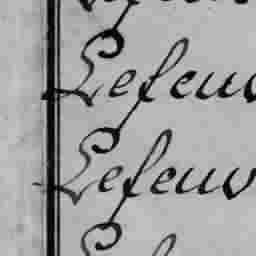 Lefeuv
Lefeuv